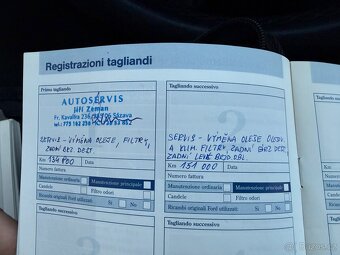 Registrazioni tagliandi
Primo tagliando
AUTOSERVIS
Jiří Zeman
Fr. Kavalíra
Sázava
tel.: 775 162 236
SERVIS - VÝMĚNA OLEJE, FILTRY,
ZADNÍ BRZ. DEST.
Km 134 800 Data
Numero fattura
Manutenzione ordinaria Manutenzione principale
Candele Filtro odori
Ricambi originali Ford utilizzati: Si No
Tagliando successivo
Tagliando successivo
SERVIS - VÝMĚNA OLEJE
A KLIM. FILTRY, ZADNÍ BRZ. DEST.
ZADNÍ LEVÉ
Km 151 000 Data
Numero fattura
Manutenzione ordinaria Manutenzione principale
Candele Filtro odori
Ricambi originali Ford utilizzati: Si No
Tagliando successivo